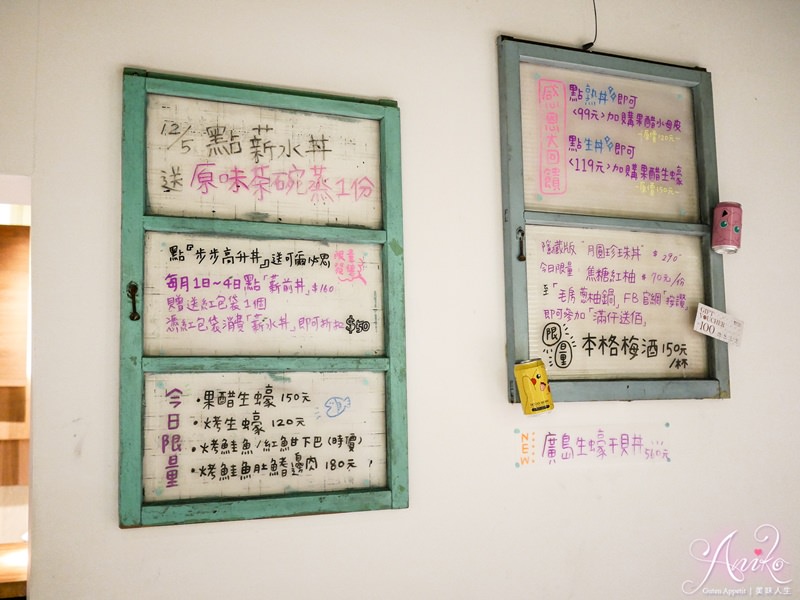 12/5 點薪水丼
送 原味茶碗蒸1份
點『步步高升丼』送可爾必思
限量
發售
每月1日~4日點「薪前丼」$160
贈送紅包袋1個
憑紅包袋消費「薪水丼」即可折扣$50
今日限量
・果醋生蠔 150元
・烤生蠔 120元
・烤鮭魚/紅魽下巴(時價)
・烤鮭魚肚鰭邊肉 180元
感恩大回饋
點熟丼即可
<99元>加購果醋小魚皮
點生丼即可
<119元>加購果醋生蠔
-原價150元-
隱藏版"月圓珍珠丼" $290
今日限量 焦糖紅柚 $70元/份
至「毛房蔥柚鍋」FB官網"按讚"
即可參加「滿仔送佰」
限日量 本格梅酒 150元/杯
GIFT
VOUCHER
100
NEW 廣島生蠔干貝丼 560元
Aniko
Guten Appetit | 美妹人生